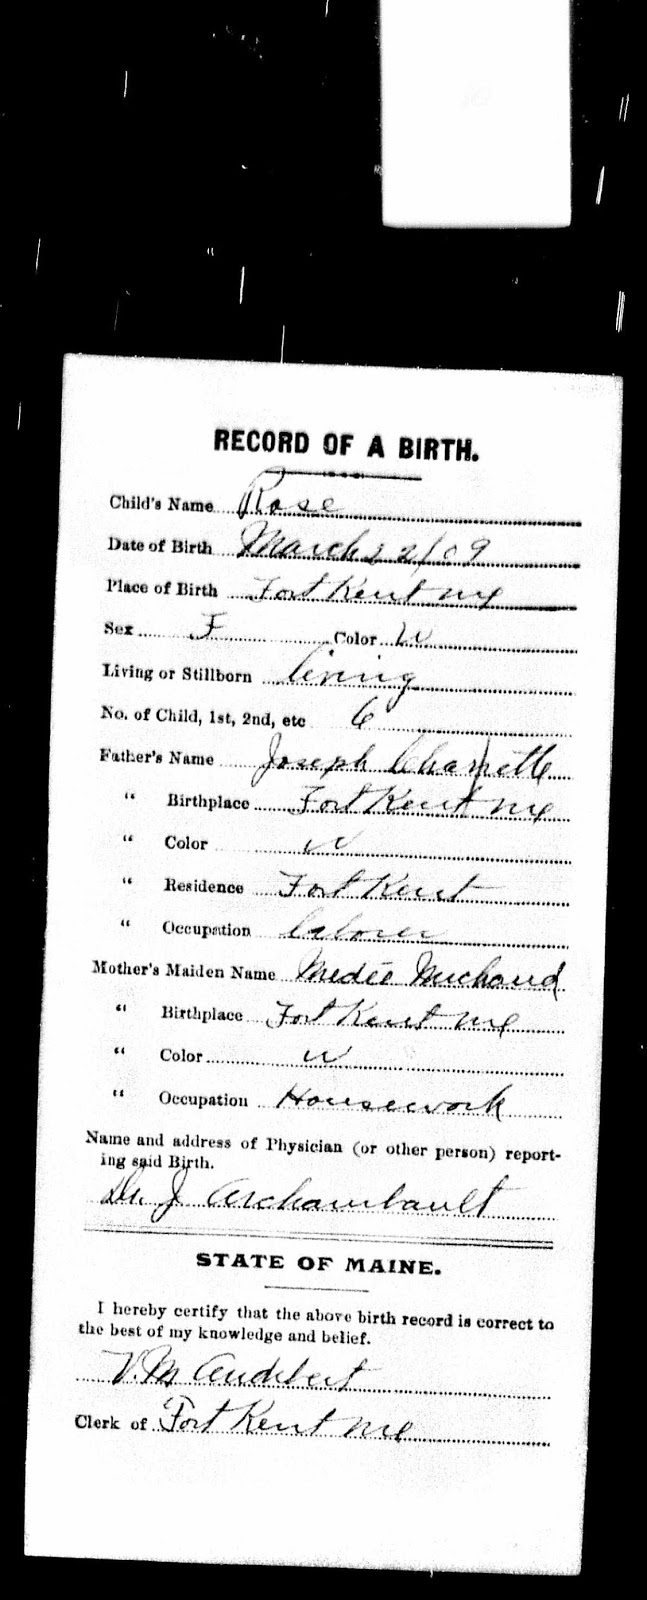 RECORD OF A BIRTH.
Child's Name Rose
Date of Birth March 22/09
Place of Birth Fort Kent Me
Sex F Color W
Living or Stillborn living
No. of Child, 1st, 2nd, etc 6
Father's Name Joseph Charrette
" Birthplace Fort Kent Me
" Color W
" Residence Fort Kent
" Occupation laborer
Mother's Maiden Name Medée Michaud
" Birthplace Fort Kent Me
" Color W
" Occupation Housework
Name and address of Physician (or other person) report-
ing said Birth.
Dr. J Archambault
STATE OF MAINE.
I hereby certify that the above birth record is correct to
the best of my knowledge and belief.
V. M Audibert
Clerk of Fort Kent Me